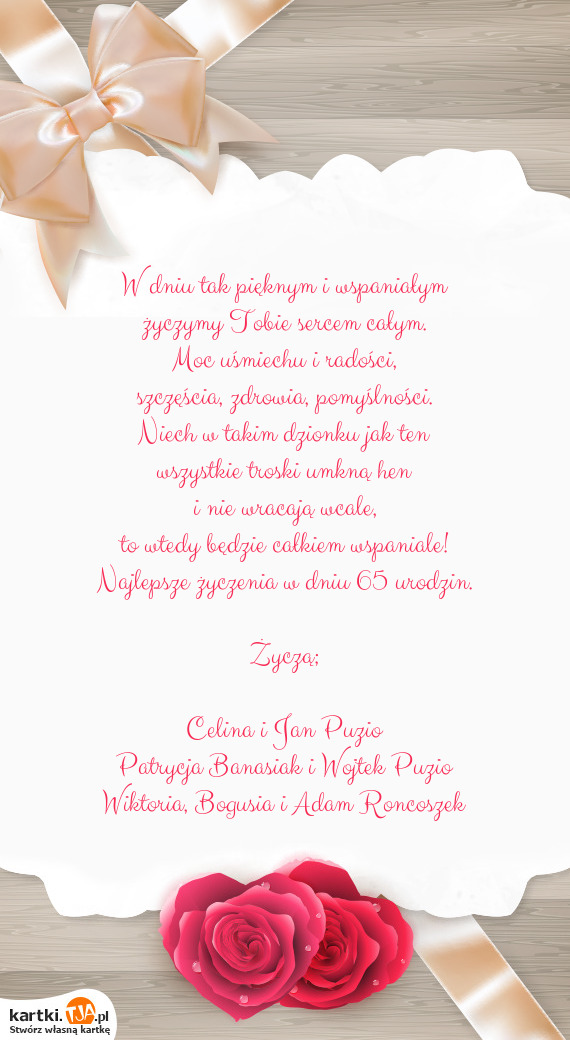 W dniu tak pięknym i wspaniałym
życzymy Tobie sercem całym.
Moc uśmiechu i radości,
szczęścia, zdrowia, pomyślności.
Niech w takim dzionku jak ten
wszystkie troski umkną hen
i nie wracają wcale,
to wtedy będzie całkiem wspaniale!
Najlepsze życzenia w dniu 65 urodzin.
Życzą;
Celina i Jan Puzio
Patrycja Banasiak i Wojtek Puzio
Wiktoria, Bogusia i Adam Roncoszek
kartki.TJA.pl
Stwórz własną kartkę